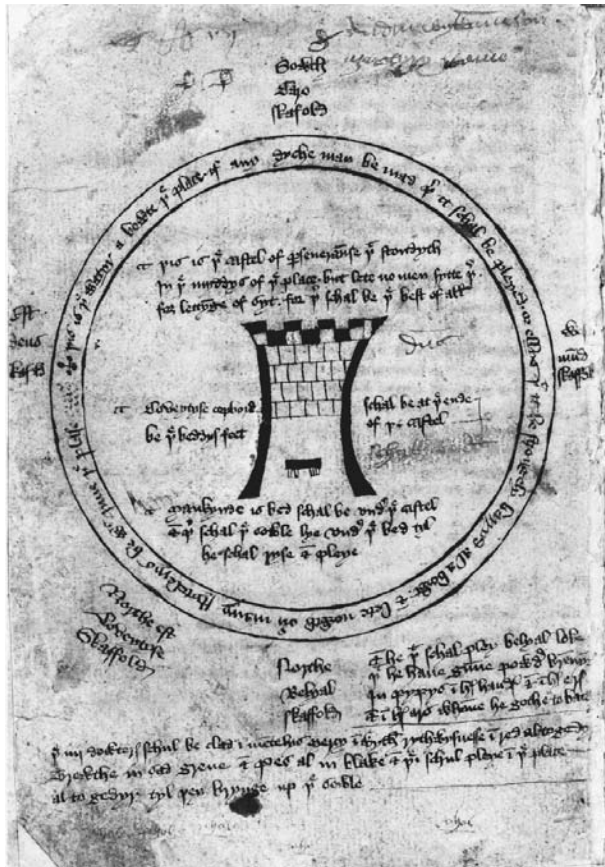 Sowth
Caro
skafold
þis is þe watyr a bowte þe place, if any dyche may be mad þer it schal be pleyed or ellys þt it be strongely barryd al a bowt & lete nowth ouyr many stytelerys be wt inne þe plase
þis is þe castel of pseueraunse þt stondyth
In þe myddys of þe place but lete no men sytte þer
for lettynge of syt for þer schal be þe best of all
Est
deus
skafold
W
mund
skaffold
Coveytyse copbord
be þe beddys feet
schal be at þe ende
of þe castel
Mankynde is bed schal be vndyr þe castel
& þer schal þe sowle lye vndyr þe bed tyl
he schal ryse & pleye
Northe est
Coveytyse
Skaffold
Northe
Belyal
skaffold
& he þt schal pley belyal loke
þt he haue gunne powdyr brennyng
In pypys in hs handys & in hs erys
& in hs ars whanne he gothe to batayl
þe iiij dowterys schul be clad in mentelys mercy in wyth rythwysnesse in red altogedyr
Trewthe in sad grene & pes al in blake & þei schul pleye in þe place
al to gedyr tyl þey brynge up þe sowle